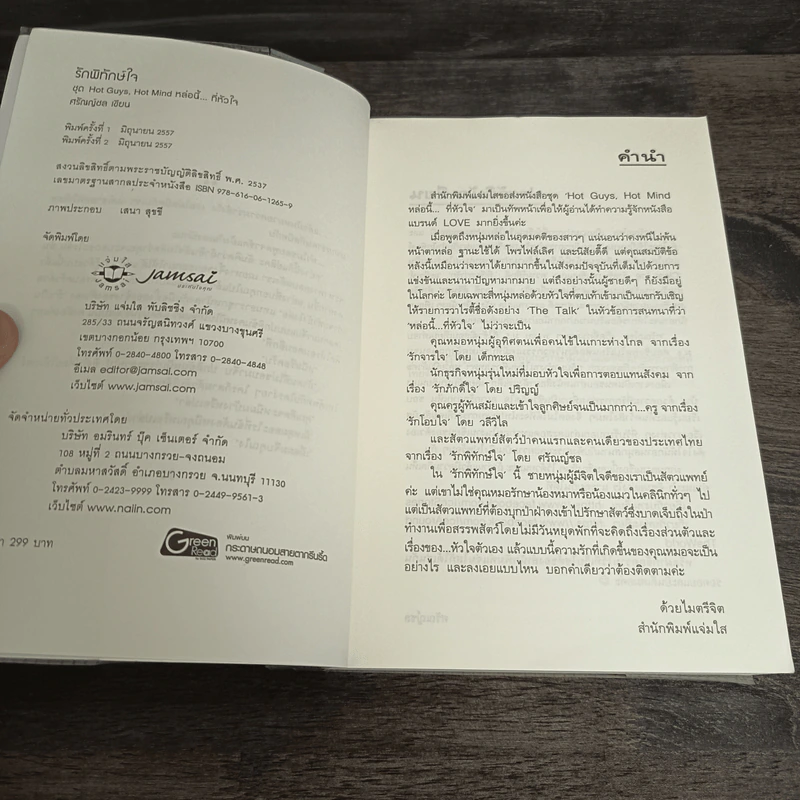 รักพิทักษ์ใจ
ชุด Hot Guys, Hot Mind หล่อนี้... ที่หัวใจ
ศรัณญ์ชล เขียน
พิมพ์ครั้งที่ 1 มิถุนายน 2557
พิมพ์ครั้งที่ 2 มิถุนายน 2557
สงวนลิขสิทธิ์ตามพระราชบัญญัติลิขสิทธิ์ พ.ศ. 2537
เลขมาตรฐานสากลประจำหนังสือ ISBN 978-616-06-1265-9
ภาพประกอบ เสนา สุขชี
จัดพิมพ์โดย
แจ่มใส
Jamsai
Jamsai
บริษัท แจ่มใส พับลิชชิ่ง จำกัด
285/33 ถนนจรัญสนิทวงศ์ แขวงบางขุนศรี
เขตบางกอกน้อย กรุงเทพฯ 10700
โทรศัพท์ 0-2840-4800 โทรสาร 0-2840-4848
อีเมล editor@jamsai.com
เว็บไซต์ www.jamsai.com
จัดจำหน่ายทั่วประเทศโดย
บริษัท อมรินทร์ บุ๊ค เซ็นเตอร์ จำกัด
108 หมู่ที่ 2 ถนนบางกรวย-จงถนอม
ตำบลมหาสวัสดิ์ อำเภอบางกรวย จ.นนทบุรี 11130
โทรศัพท์ 0-2423-9999 โทรสาร 0-2449-9561-3
เว็บไซต์ www.naiin.com
299 บาท
Green Read
พิมพ์บน
กระดาษถนอมสายตากรีนรี้ด
www.greenread.com
คำนำ
สำนักพิมพ์แจ่มใสขอส่งหนังสือชุด 'Hot Guys, Hot Mind
หล่อนี้... ที่หัวใจ' มาเป็นทัพหน้าเพื่อให้ผู้อ่านได้ทำความรู้จักหนังสือ
แบรนด์ LOVE มากยิ่งขึ้นค่ะ
เมื่อพูดถึงหนุ่มหล่อในอุดมคติของสาวๆ แน่นอนว่าคงหนีไม่พ้น
หน้าตาหล่อ ฐานะใช้ได้ โพรไฟล์เลิศ และนิสัยดี๊ดี แต่คุณสมบัติข้อ
หลังนี้เหมือนว่าจะหาได้ยากมากขึ้นในสังคมปัจจุบันที่เต็มไปด้วยการ
แข่งขันและนานาปัญหามากมาย แต่ถึงอย่างนั้นผู้ชายดีๆ ก็ยังมีอยู่
ในโลกค่ะ โดยเฉพาะสี่หนุ่มหล่อด้วยหัวใจที่ตบเท้าเข้ามาเป็นแขกรับเชิญ
ให้รายการวาไรตี้ชื่อดังอย่าง 'The Talk' ในหัวข้อการสนทนาที่ว่า
'หล่อนี้...ที่หัวใจ' ไม่ว่าจะเป็น
คุณหมอหนุ่มผู้อุทิศตนเพื่อคนไข้ในเกาะห่างไกล จากเรื่อง
'รักจารใจ' โดย เด็กทะเล
นักธุรกิจหนุ่มรุ่นใหม่ที่มอบหัวใจเพื่อการตอบแทนสังคม จาก
เรื่อง 'รักภักดิ์ใจ' โดย ปริญญ์
คุณครูผู้ทันสมัยและเข้าใจลูกศิษย์จนเป็นมากกว่า...ครู จากเรื่อง
'รักโอบใจ' โดย วลีวิไล
และสัตวแพทย์สัตว์ป่าคนแรกและคนเดียวของประเทศไทย
จากเรื่อง 'รักพิทักษ์ใจ' โดย ศรัณญ์ชล
ใน 'รักพิทักษ์ใจ' นี้ ชายหนุ่มผู้มีจิตใจดีของเราเป็นสัตวแพทย์
ค่ะ แต่เขาไม่ใช่คุณหมอรักษาน้องหมาหรือน้องแมวในคลินิกทั่วๆ ไป
แต่เป็นสัตวแพทย์ที่ต้องบุกป่าฝ่าดงเข้าไปรักษาสัตว์ซึ่งบาดเจ็บถึงในป่า
ทำงานเพื่อสรรพสัตว์โดยไม่มีวันหยุดพักที่จะคิดถึงเรื่องส่วนตัวและ
เรื่องของ...หัวใจตัวเอง แล้วแบบนี้ความรักที่เกิดขึ้นของคุณหมอจะเป็น
อย่างไร และลงเอยแบบไหน บอกคำเดียวว่าต้องติดตามค่ะ
ด้วยไมตรีจิต
สำนักพิมพ์แจ่มใส